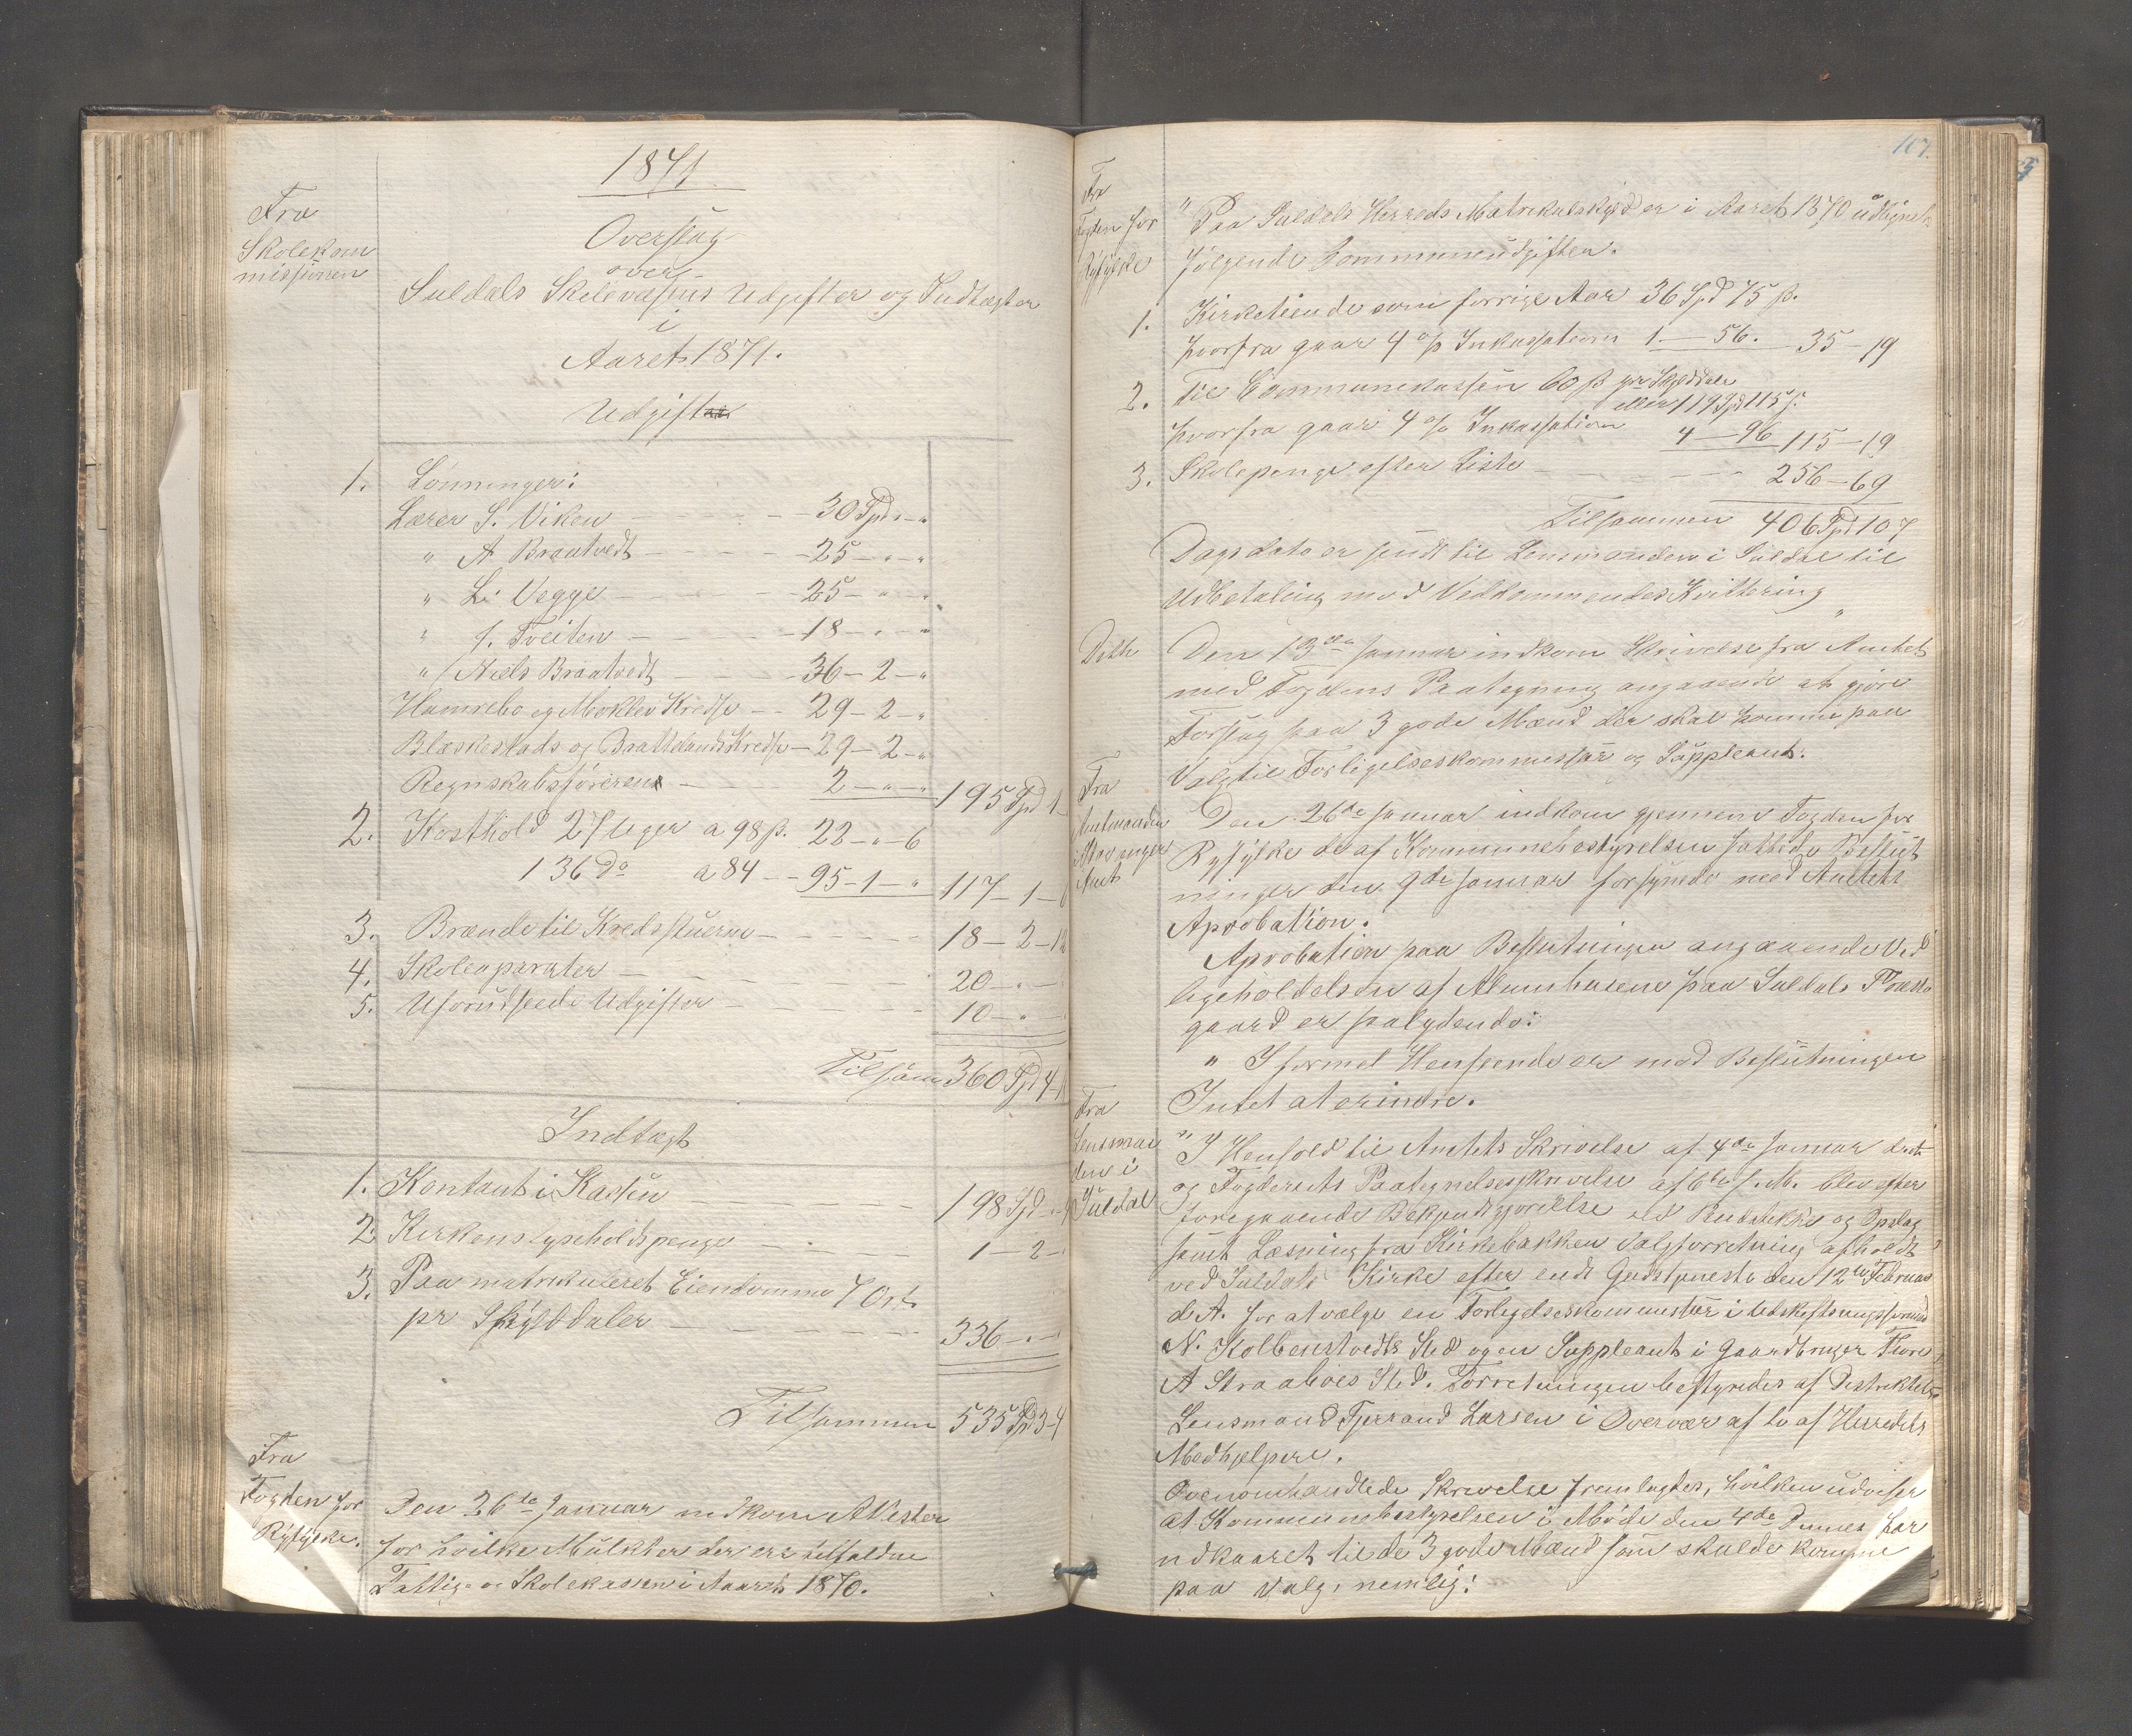 1871
Fra
Skolekom
missionen
Overslag
over
Suldals Skolevæsens Udgifter og Indtægter
i
Aaret 1871.
Udgifter
1. Lønninger:
Lærer S. Viken - - - 30 Spd - „
„ A Braatvedt - - - 25 - „ - „
„ L. Vegge - - - 25 - „ - „
„ J. Tveiten - - - 18 - „ - „
„ Niels Braatvedt - - - 36 - 2 - „
Hamrebo og Moklev Kredse - - 29 - 2 - „
Blæskestads og Brattelands Kredse - 29 - 2 - „
Regnskabsføreren - - - 2 - „ - „ 195 Spd 1
2. Kosthold 27 Uger a 98 ß. 22 - „ - 6
136 Do a 84 - - 95 - 1 - „ 117 - 1 - 6
3. Brænde til Kredsstuerne - - - 18 - 2 - 12
4. Skoleaparater - - - 20 - „ -
5. Uforudseede Udgifter - - - 10 - „ -
Tilsam 360 Spd 4
Indtægt
1. Kontant i Kassen - - - 198 Spd
2. Kirkens lyseholdspenge - - - 1 - 2 -
3. Paa matrikuleret Eiendomme 7 Ort
pr Skylddaler - - - 336 - „ -
Tilsammen 535 Spd 3-4
Fra
Fogden for
Ryfylke.
Den 26de Januar indkom
for hvilke Mulkter der er tilfaldne
Fattig- og Skolekassen i Aaret 1870.
107.
Fra
Fogden for
Ryfylke
„ Paa Suldals Herreds Matrikulskyld er i Aaret 1870 udlignet
følgende Kommuneudgifter.
1. Kirketiende som forrige Aar 36 Spd 75 ß.
hvorfra gaar 4 % Inkassation 1 - 56. 35 - 19
2. Til Communekassen 60 ß pr Skylddaler
eller 119 Spd 115 ß.
hvorfra gaar 4 % Inkassation 4 - 96 115 - 19
3. Skolepenge efter Liste - - - 256 - 69
Tilsammen 406 Spd 107
Dagsdato er sendt til Lensmanden i Suldal til
Udbetaling mod Vedkommendes Kvittering „
Dito
Den 13de Januar indkom Skrivelse fra Amtet
med Fogdens Paategning angaaende at gjøre
Forslag paa 3 gode Mænd der skal komme paa
Valg til Forligelseskommissær og Suppleant.
Fra
Amtmanden
i Stavanger
Amt
Den 26de Januar indkom gjennem Fogden for
Ryfylke de af Kommunebestyrelsen fattede Beslut
ninger den 9de Januar forsynede med Amtets
Aprobation.
Aprobation paa Beslutningen angaaende Ved
ligeholdelsen af Alumhusene paa Suldals Præste
gaard er saalydende:
„ I formel Henseende er mod Beslutningen
Intet at erindre.
Fra
Lensman
den i
Suldal
„ I Henhold til Amtets Skrivelse af 4de Januar
og Fogderiets Paategnelsesskrivelse af 6te s. M. blev efter
foregaaende Bekjendtgjørelse ved Budstikke og Opslag
samt Læsning fra Kirkebakken Valgforretning afholdt
ved Suldals Kirke efter endt Gudstjeneste den 12te Februar
d. A. for at vælge en Forligelseskommissær i Udskiftningsformand
N. Kolbenstvedts Sted og en Suppleant i Gaardbruger Thore
A Straabøes Sted. Forretningen bestyredes af Distriktets
Lensmand Tjerrand Larsen i Overvær af to af Herredets
Medhjelpere.
Ovenomhandlede Skrivelse fremlagdes, hvilken udviser
at Kommunebestyrelsen i Møde den 4de Dennes har
udkaaret til de 3 gode Mænd som skulde komme
paa Valg, nemlig: